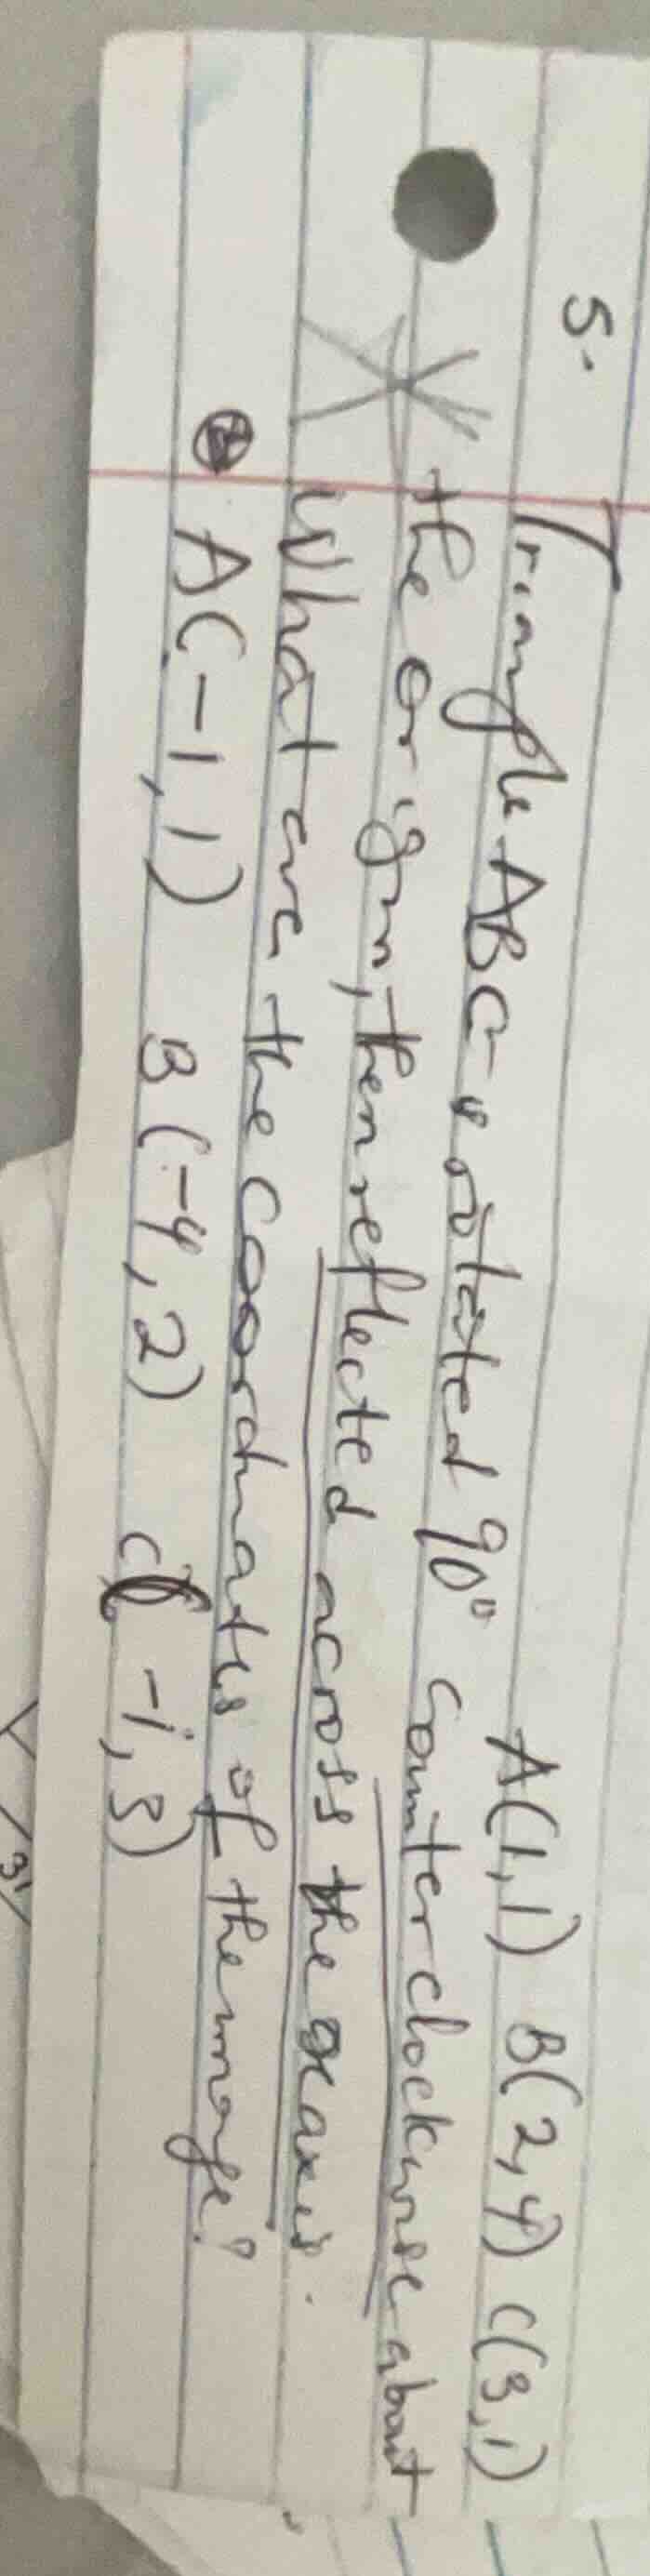 5. Triangle ABC is rotated 90° counterclockwise about
A(1,1) B(2,4) C(3,1)
the origin, then reflected across the x axis.
What are the coordinates of the image?
A(-1,1) B(-4,2) C(-1,3)